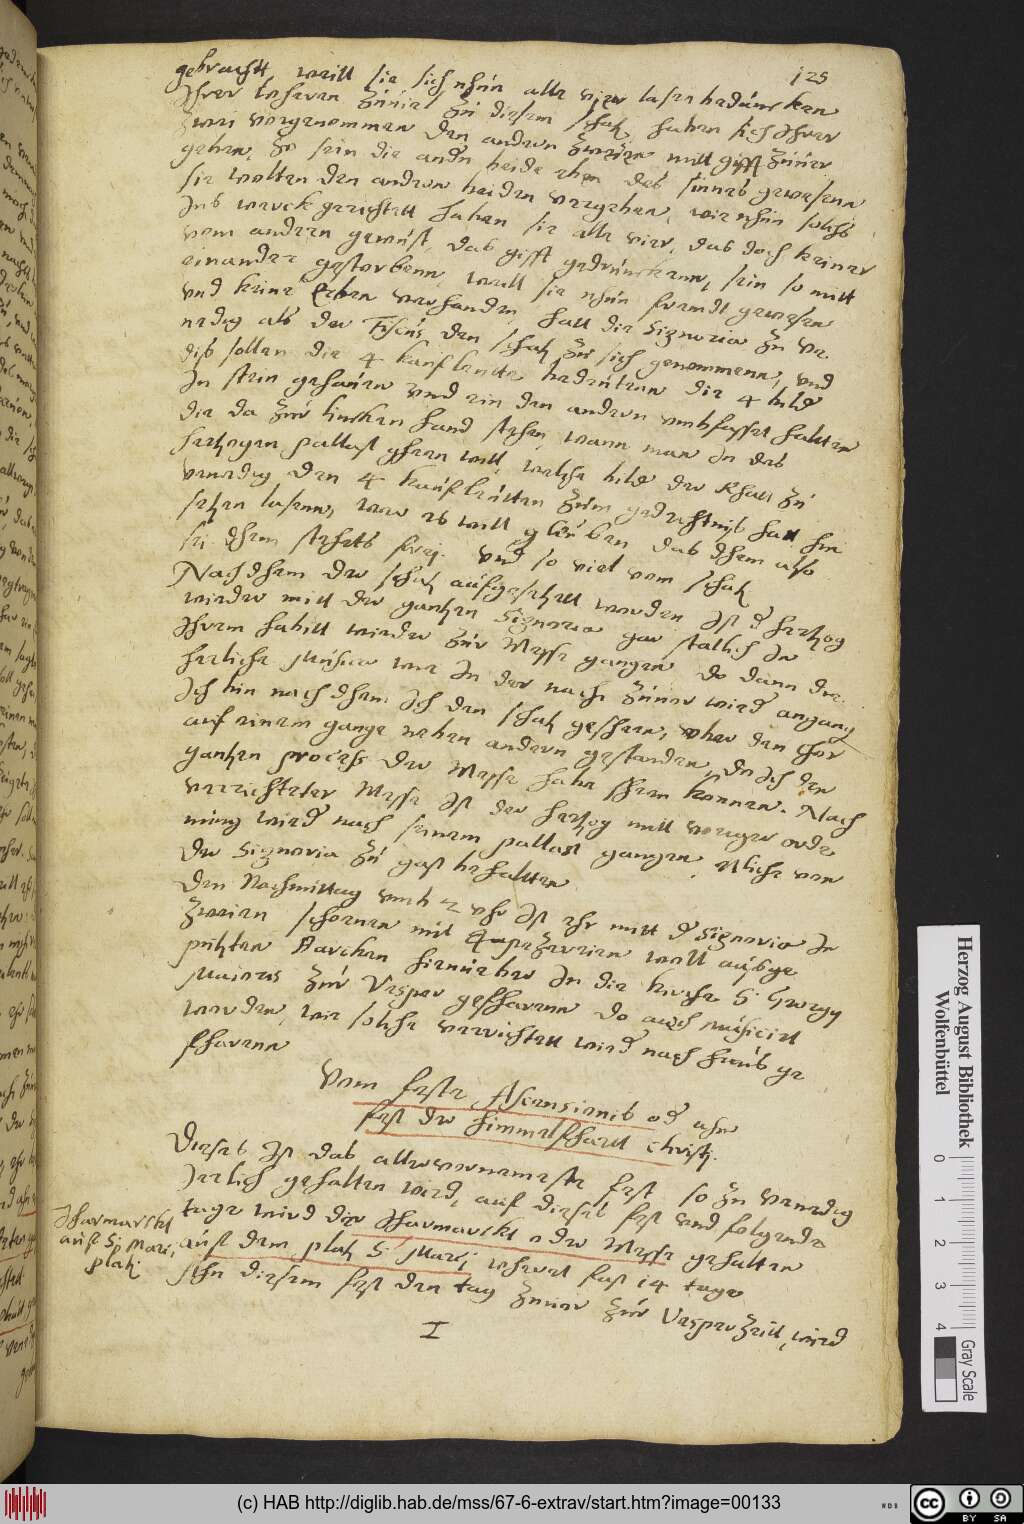 125
gebracht weill sie sich nhun alle vier lasen beduncken
Ihrer weheren zuviel zu diesem schatz, haben sich Ihrer
zwei vorgenommen den andern zweien mitt gifft zuuer
geben, So sein die andn beide eben des sinnes gewesenn
sie wolten den andern beiden vergeben, wie nhun solchs
Ins werck gerichtett haben sie alle vier, das doch keiner
vom andern gewust, das gifft gedrunckenn, sein so mitt
einander gestorbenn, weill sie nhun frembt gewesen
vnd keine Erben verhanden hatt die Signoria zu Ve.
nedig als der Fiscus den schatz zu sich genommenn, vnd
dis sollen die 4 kaufleutte bedeutenn die 4 bilde
In stein gehauen vnd ein den andern vmbfasset haltten
die da zur lincken hand stehen, wann man In des
hertzogen pallast gehen will, welche bilde der Rhatt zu
Venedig den 4 kaufleutten zum gedechtnis hatt hin
setzen lasenn, wer es will gleuben das dhem also
sei dhem stehets frei. Vnd so viel vom schatz
Nach dhem der schatz aufgesetzett worden Ist d hertzog
wieder mitt der gantzen Signoria gar stadlich In
Ihrem habitt wieder zur Messe gangen do dann die
herliche Musica wie In der nacht zuuor wird angang
Ich bin nach dhem Ich den schatz gesehenn, vber den Chor
auf einem gange neben andern gestanden, do Ich den
gantzen process der Messe habe sehen konnen. Nach
verrichteter Messe Ist der hertzog mitt voriger orde
nung wied nach seinem pallast gangen, etliche von
der Signoria zu gast behaltten
Den Nachmittag vmb 2 vhr Ist ehr mitt d Signoria In
zweien schoenen mit Tapezereien woll ausge
putzten Barcken hinuber In die kirche S. Georgy
Maioris zur Vesper gefharenn do auch musicirt
worden, wie solche verrichtett wied nach haus ge
fharenn
Vom feste Ascensionis od ahn
fest der himmelfhartt Christj.
Dieses Ist das allervornemeste fest so zu Venedig
Ierlich gehalten wird, auf dieses fest vnd folgende
tage wird der Iharmarckt oder Messe gehalten
auf dem platz S. Marcj weheret fast 14 tage
Ahn diesem fest den tag zuuor zur Vesperzeitt, wird
I
Iharmarckt
auf S. Marcj
platz
Herzog August Bibliothek
Wolfenbüttel
0 1 2 3 4
Gray Scale
(c) HAB http://diglib.hab.de/mss/67-6-extrav/start.htm?image=00133
WDB
cc BY SA